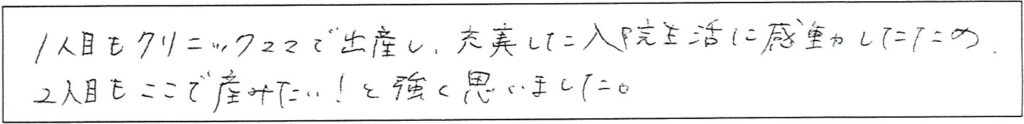 1人目もクリニックママで出産し、充実した入院生活に感動したため、
2人目もここで産みたい!と強く思いました。